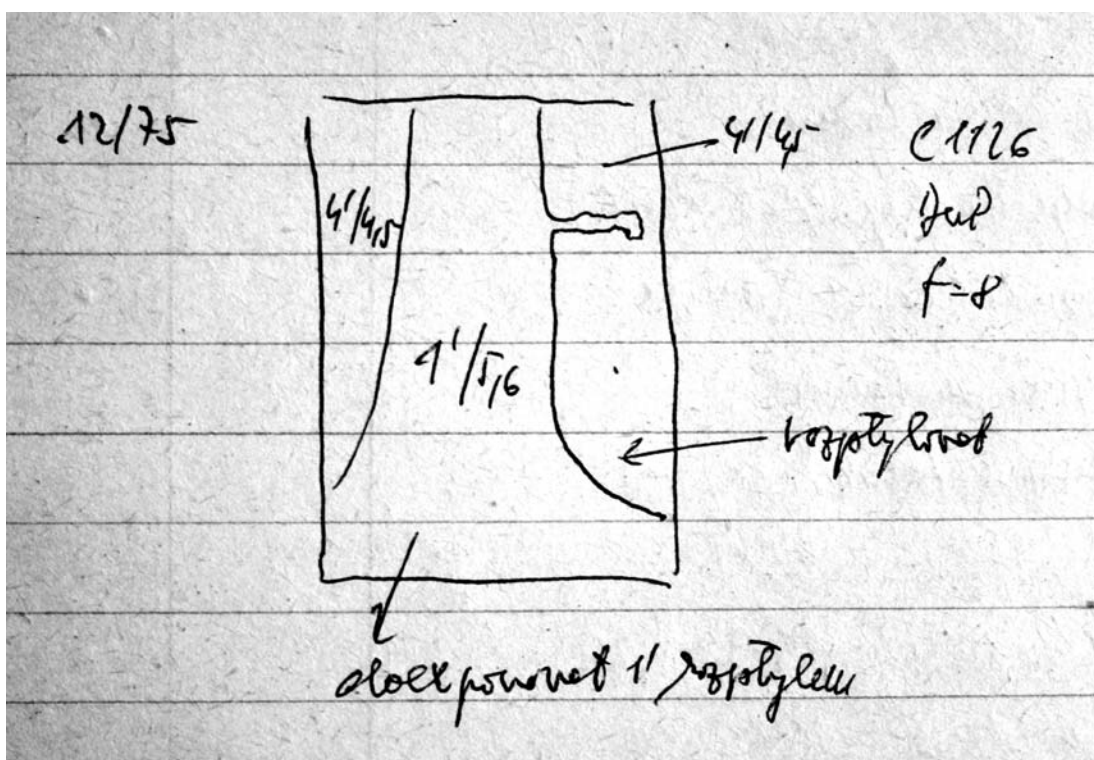 12/75
4'/4,5
4'/4,5
C 1126
f=8
1'/5,6
rozptylovat
doexponovat 1' rozptylem